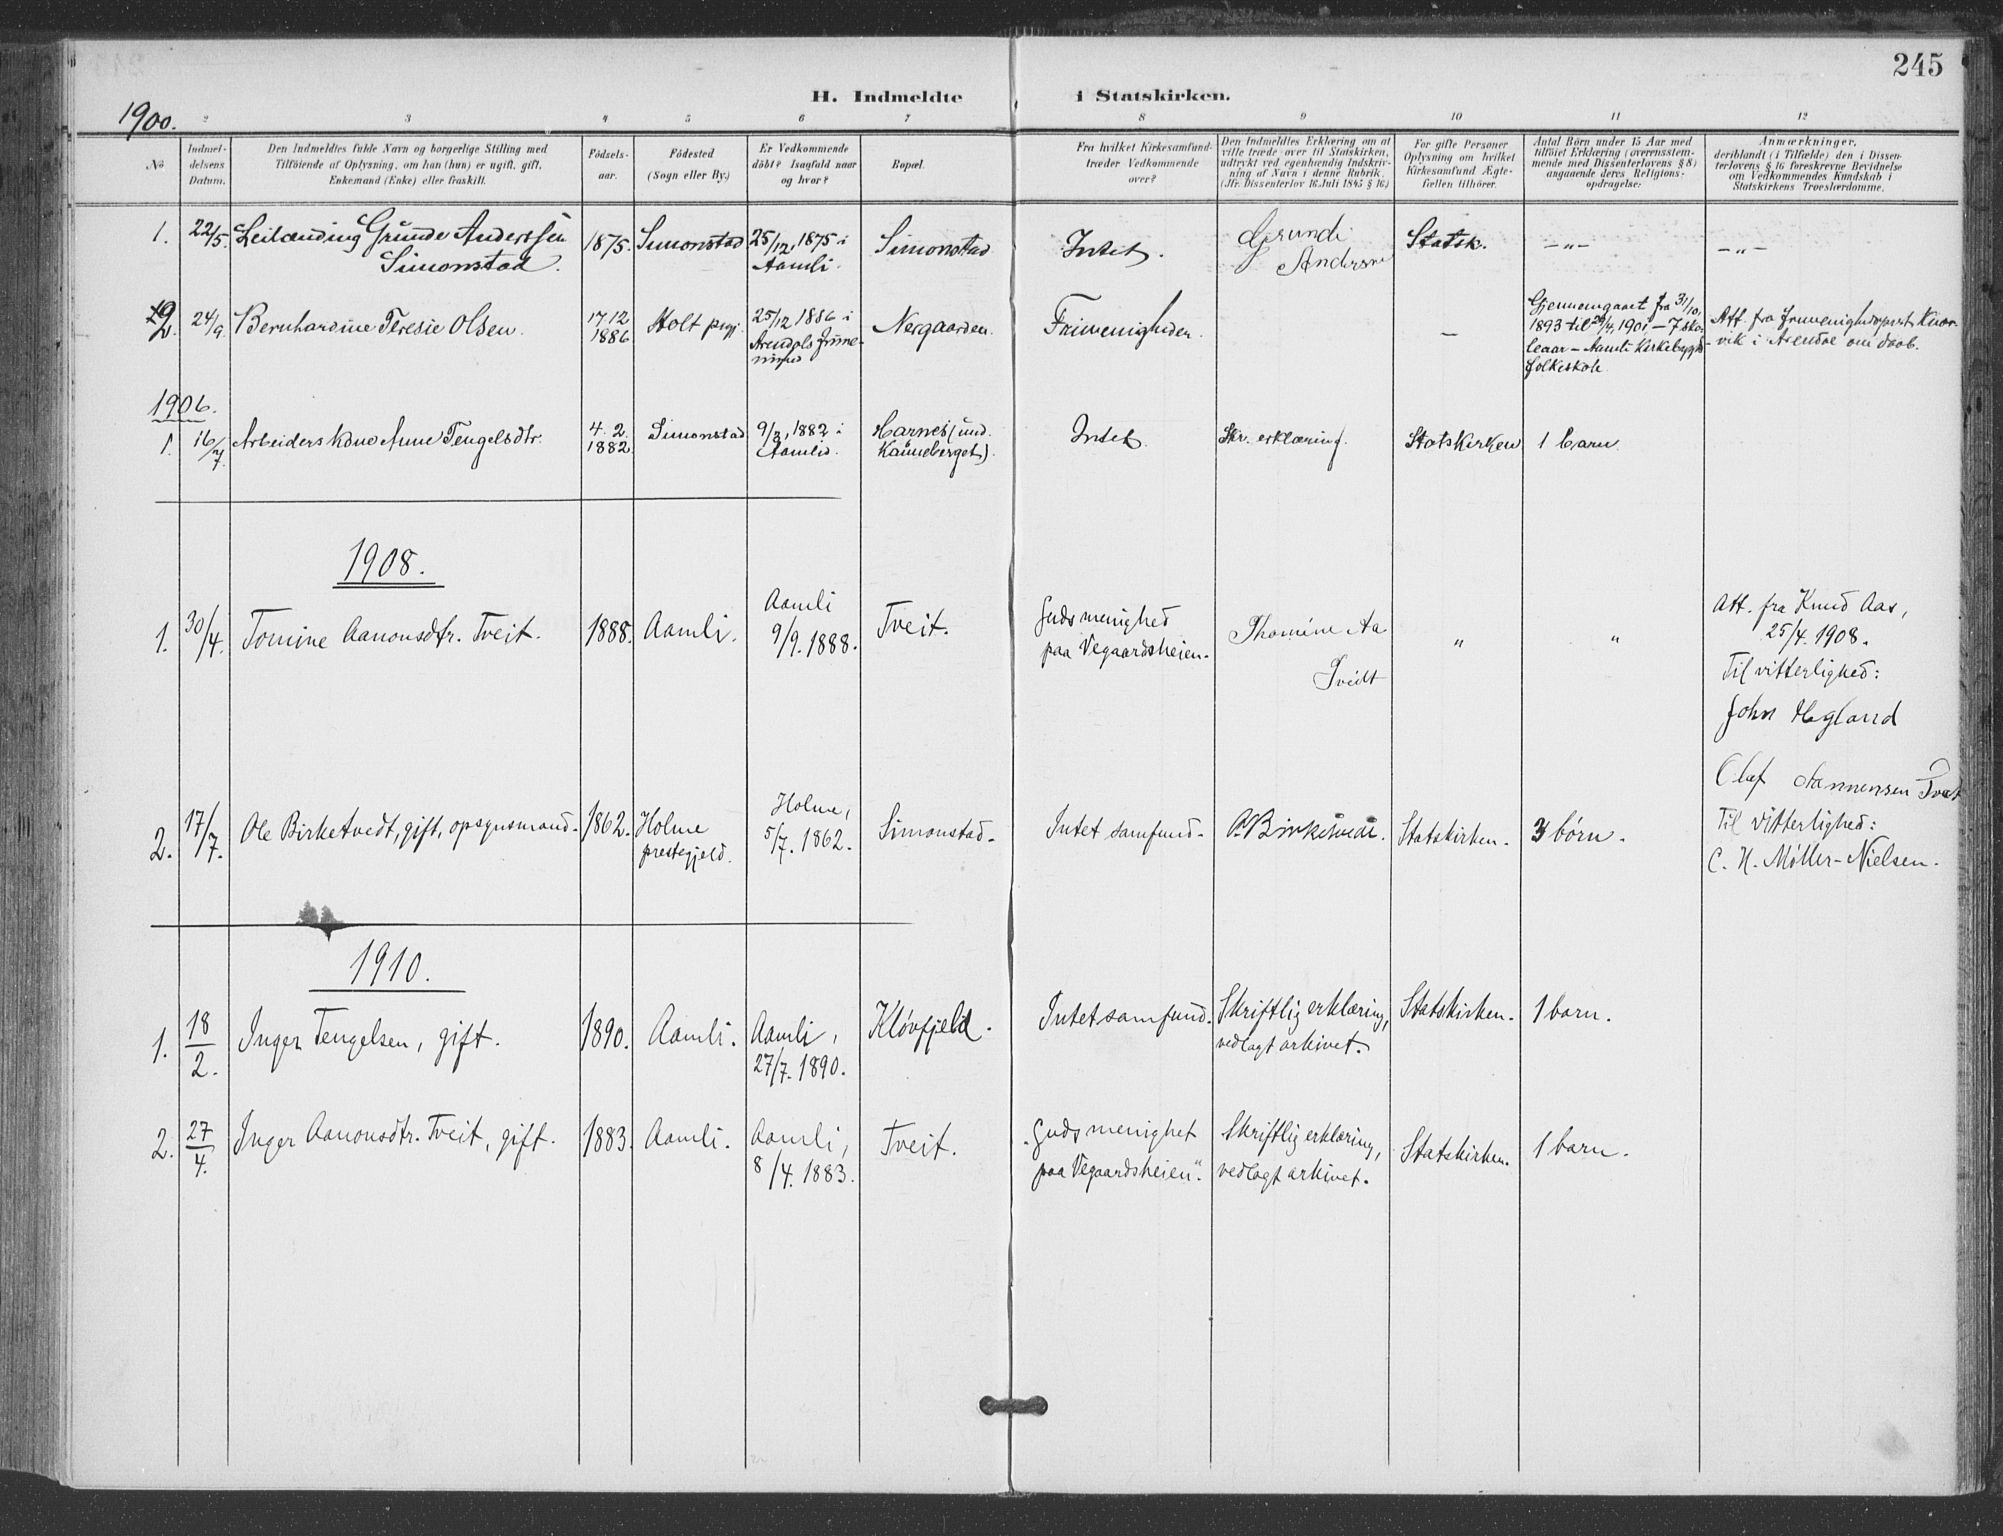 245
H. Indmeldte i Statskirken.
1900.
2 3 4 5 6 7 8 9 10 11 12
No
Indmel-
delsens
Datum.
Den Indmeldtes fulde Navn og borgerlige Stilling med
Tilföiende af Oplysning, om han (hun) er ugift, gift,
Enkemand (Enke) eller fraskilt.
Födsels-
aar.
Födested
(Sogn eller By.)
Er Vedkommende
döbt? Isaafald naar
og hvor?
Bopæl.
Fra hvilket Kirkesamfund
træder Vedkommende
over?
Den Indmeldtes Erklæring om at
ville træde over til Statskirken,
udtrykt ved egenhændig Indskriv-
ning af Navn i denne Rubrik.
(Jfr. Dissenterlov 16. Juli 1845 § 16.)
For gifte Personer
Oplysning om hvilket
Kirkesamfund Ægte-
fællen tilhörer.
Antal Börn under 15 Aar med
tilföiet Erklæring (overensstem-
mende med Dissenterlovens § 8)
angaaende deres Religions-
opdragelse.
Anmærkninger,
deriblandt (i Tilfælde) den i Dissen-
terlovens § 16 foreskrevne Bevidnelse
om Vedkommendes Kundskab i
Statskirkens Troeslærdomme.
1. 22/5. Leilænding Grunde Anderssen
Simonstad.
1875. Simonstad
25/12, 1875 i
Aamli.
Simonstad
Intet.
Grunde
Anderssen
Statsk. —„— —„—
2. 24/9. Bernhardine Teresie Olsen.
17 12
1886
Holt prgj.
25/12 1886 i
Arendals frime-
nighed
Nergaarden.
Frimenigheden.
—
Gjennemgaaet fra 31/10,
1893 til 24/4, 1901 — 7 sko-
leaar — Aamli Kirkebygds
folkeskole
Att. fra frimenighedsprest
vik i Arendal om daab.
1906.
1. 16/7 Arbeiderskone Anne Tengelsdtr.
4. 2.
1882
Simonstad
9/3, 1882 i
Aamli.
Harnes (und.
Intet.
Skr. erklæring.
Statskirken
1 barn.
1908.
1. 30/4. Tomine Aanonsdtr. Tveit.
1888. Aamli.
Aamli
9/9. 1888.
Tveit.
Guds menighed
paa Vegaardsheien.
Thomine Aa
Tvedt
„ „
Att. fra Knud Aas,
25/4. 1908.
Til vitterlighed:
John Hegland
Olaf Aannensen Tveit
2. 17/7. Ole Birketvedt, gift, opsynsmand.
1862. Holme
prestegjeld.
Holme,
5/7. 1862.
Simonstad.
Intet samfund.
O. Birketvedt.
Statskirken.
3 børn.
Til vitterlighed:
C. H. Møller-Nielsen.
1910.
1. 18/2. Inger Tengelsen, gift.
1890. Aamli.
Aamli,
27/7. 1890.
Kløvfjeld.
Intet samfund.
Skriftlig erklæring,
vedlagt arkivet.
Statskirken. 1 barn.
2. 27/4. Inger Aanonsdtr. Tveit, gift.
1883. Aamli.
Aamli,
8/4. 1883.
Tveit.
„Guds menighet
paa Vegaardsheien“.
Skriftlig erklæring,
vedlagt arkivet.
Statskirken. 1 barn.